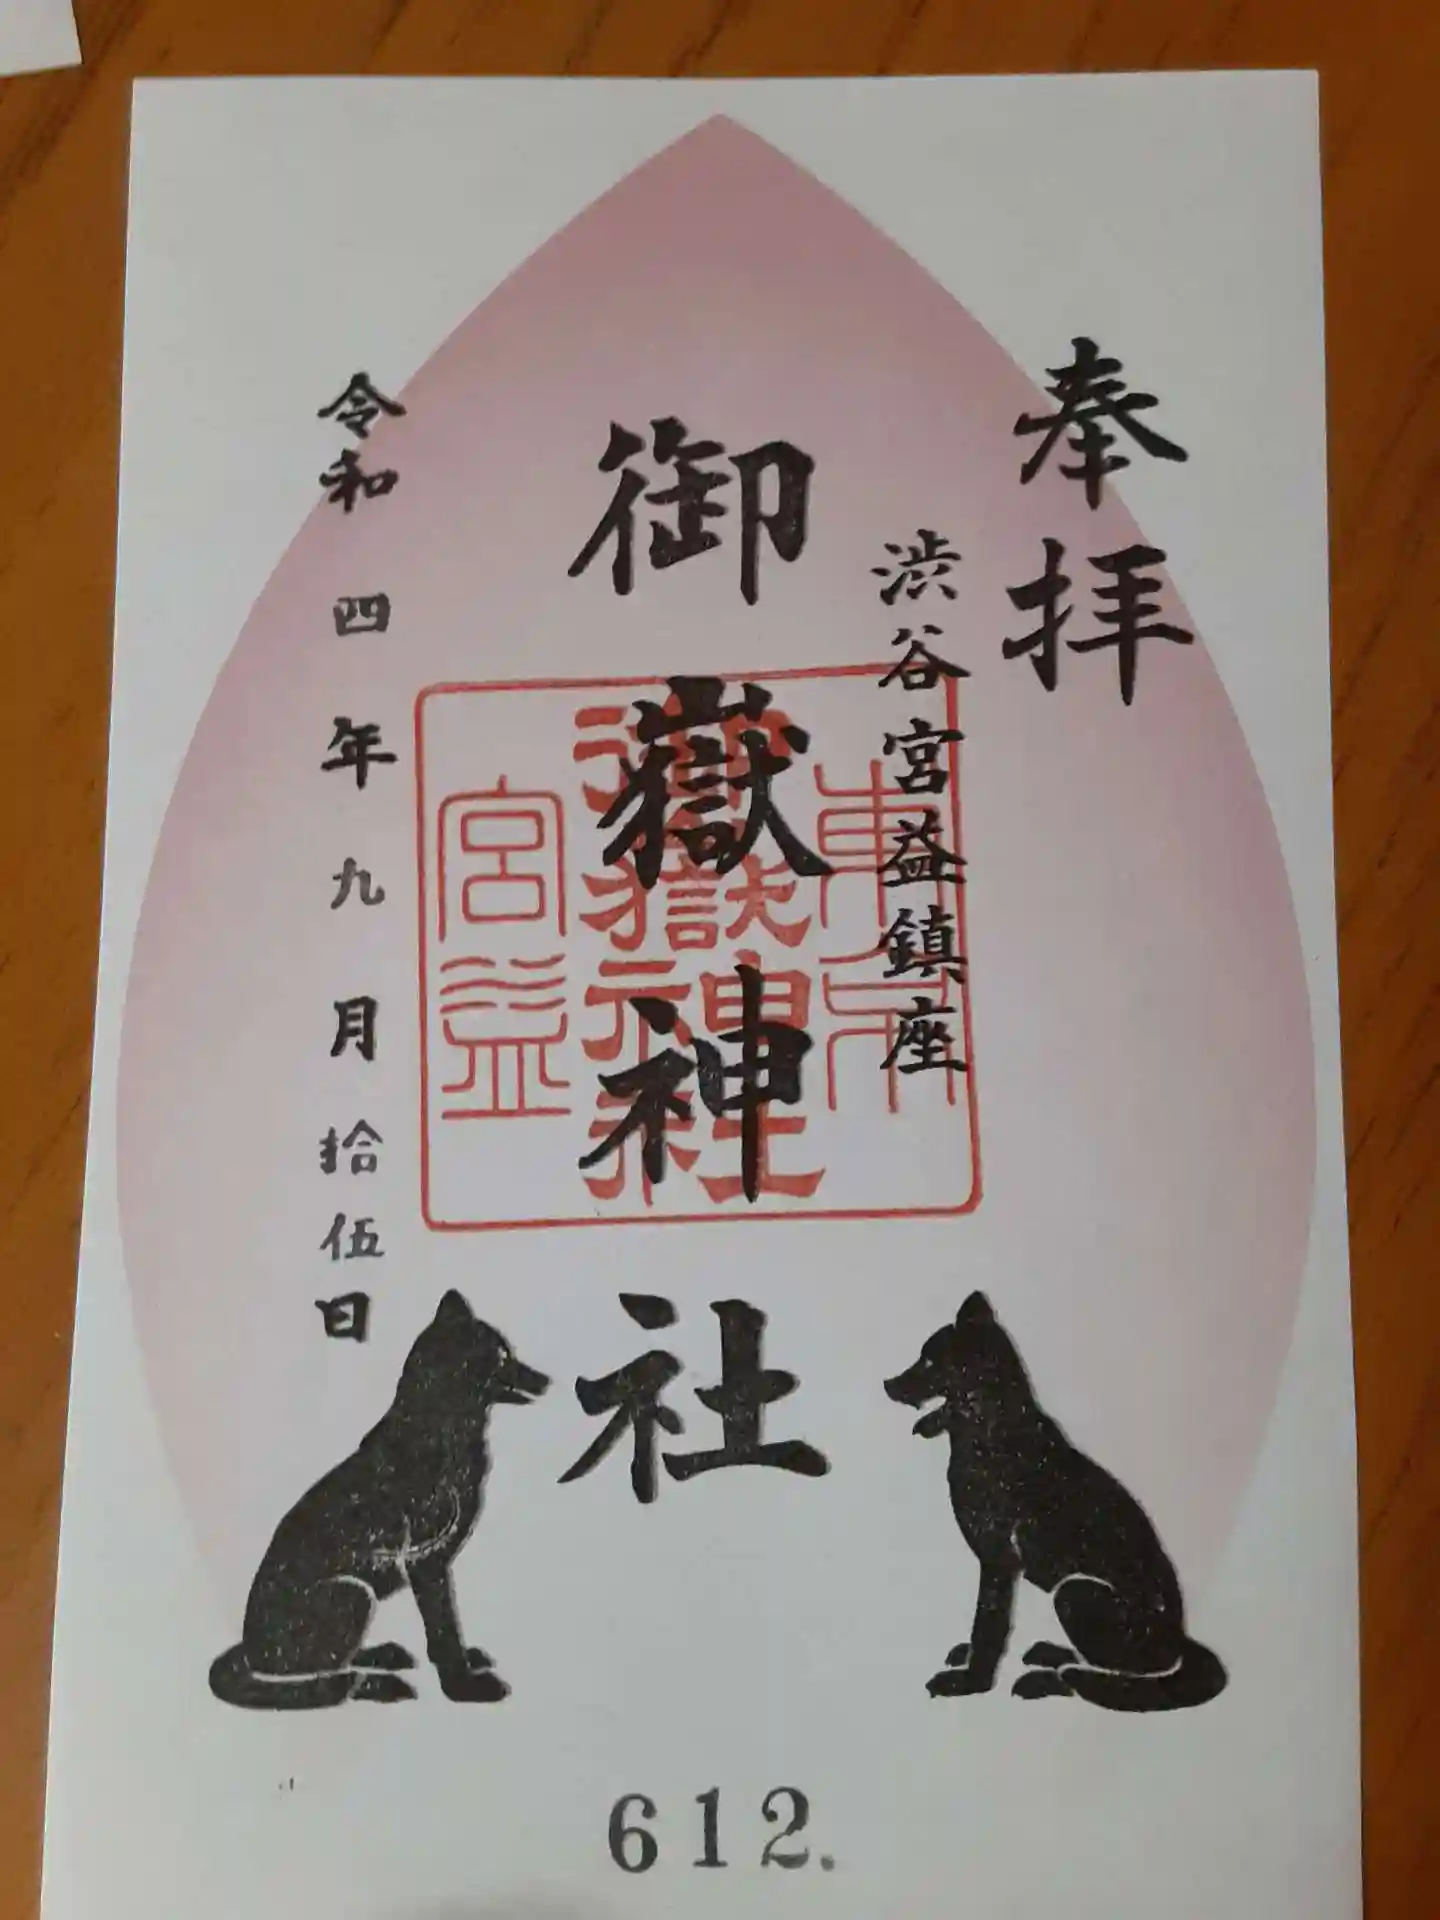 奉拝
渋谷宮益鎮座
御嶽神社
令和四年九月拾伍日
東京
御嶽神社
宮益
612.